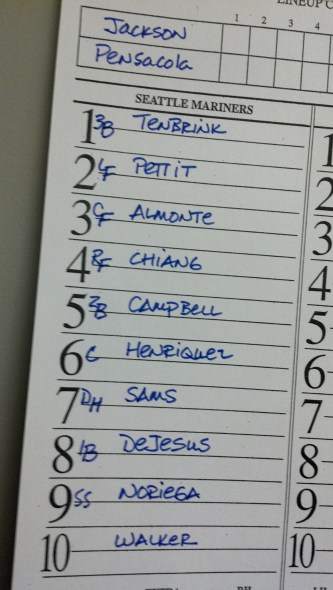 LINEUP C
1 2 3 4
Jackson
Pensacola
SEATTLE MARINERS
1 3B TENBRINK 1
2 LF PETTIT 2
3 CF ALMONTE 3
4 RF CHIANG 4
5 2B CAMPBELL 5
6 C HENRIQUEZ 6
7 DH SAMS 7
8 1B DEJESUS 8
9 SS NORIEGA 9
10 WALKER 10